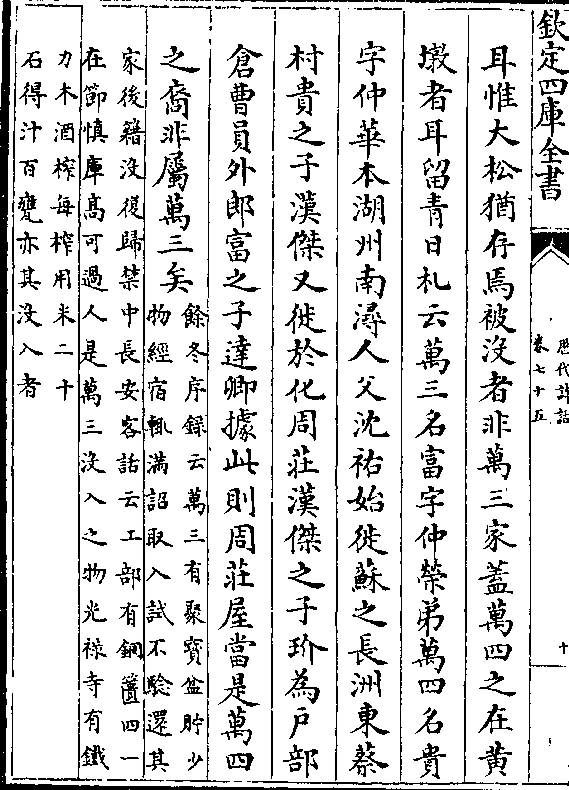 欽定四庫全書
厯代詩話
卷七十五
十
耳惟大松猶存焉被没者非萬三家蓋萬四之在黄
墩者耳留青日札云萬三名富字仲榮弟萬四名貴
字仲華本湖州南潯人父沈祐始徙蘇之長洲東蔡
村貴之子漢傑又徙於化周莊漢傑之子玠為戶部
倉曹員外郎富之子達卿據此則周莊屋當是萬四
之裔非屬萬三矣
餘冬序録云萬三有聚寳盆貯少
物經宿輙滿詔取入試不驗還其
家後籍没復歸禁中長安客話云工部有銅四一
在節慎庫髙可過人是萬三没入之物光禄寺有鐵
力木酒榨每榨用米二十
石得汁百甕亦其没入者